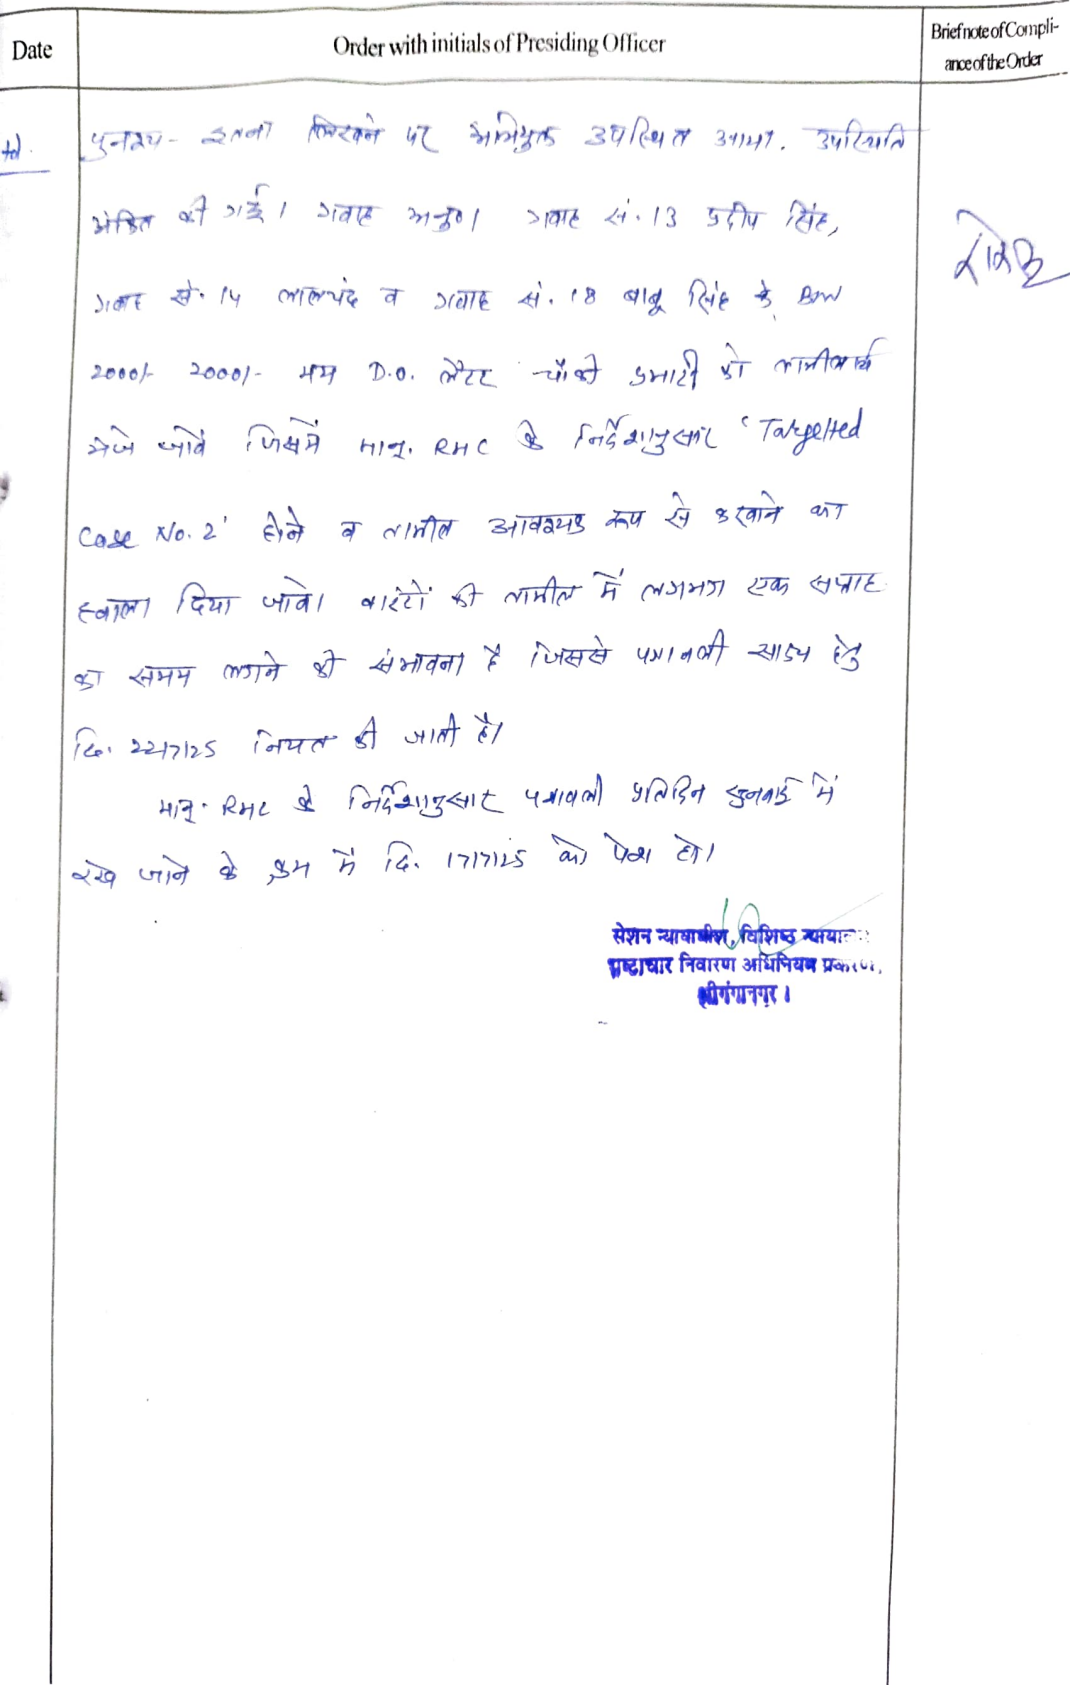 Date
Order with initials of Presiding Officer
Brief note of Compli-
ance of the Order
पुनश्च - इतना लिखने पर अभियुक्त उपस्थित आया. उपस्थिति
अंकित की गई। गवाह अनु०। गवाह सं. 13 प्रदीप सिंह,
गवाह सं. 14 लालचंद व गवाह सं. 18 बाबू सिंह के BW
2000/- 2000/- मय D.O. लेटर चौकी प्रभारी को तामीलार्थ
भेजे जावें जिसमें मान्. RHC के निर्देशानुसार 'Targetted
Case No. 2' होने व तामील आवश्यक रूप से करवाने का
हवाला दिया जावे। वारंटों की तामील में लगभग एक सप्ताह
का समय लगने की संभावना है जिससे पत्रावली साक्ष्य हेतु
दि. 22/7/25 नियत की जाती है।
मान्. RHC के निर्देशानुसार पत्रावली प्रतिदिन सुनवाई में
रखे जाने के क्रम में दि. 17/7/25 को पेश हो।
सेशन न्यायाधीश, विशिष्ठ न्यायालय
भ्रष्टाचार निवारण अधिनियम प्रकरण,
श्रीगंगानगर।